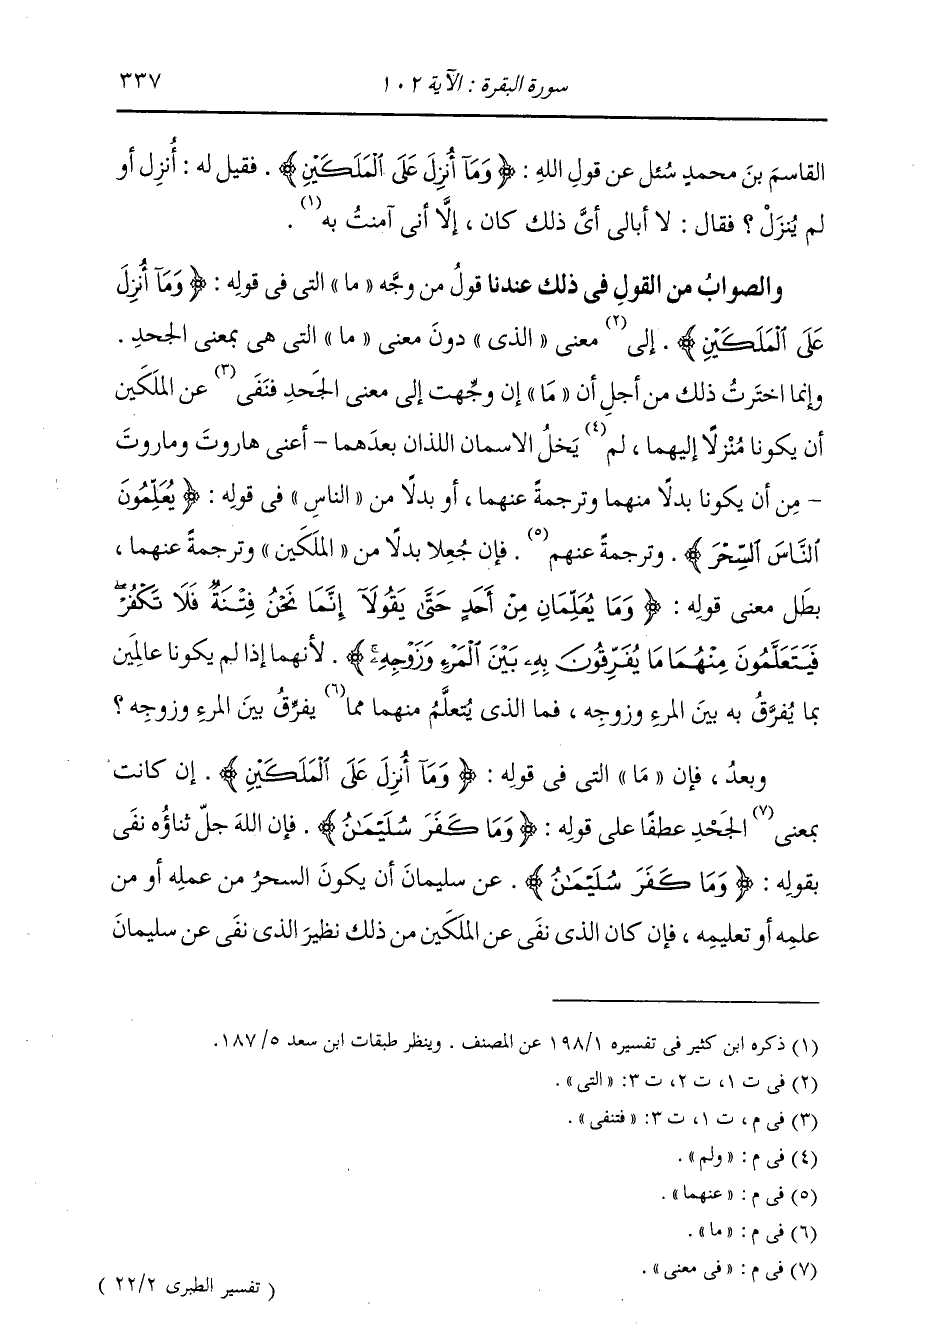 سورة البقرة : الآية ١٠٢ ٣٣٧
القاسمَ بنَ محمدٍ سُئل عن قولِ اللهِ : ﴿ وَمَآ أُنزِلَ عَلَى ٱلْمَلَكَيْنِ ﴾ . فقيل له : أُنزِل أو
لم يُنزَلْ ؟ فقال : لا أبالى أىَّ ذلك كان ، إلَّا أنى آمنتُ به(١) .
والصوابُ من القولِ فى ذلك عندنا قولُ من وجَّه « ما » التى فى قولِه : ﴿ وَمَآ أُنزِلَ
عَلَى ٱلْمَلَكَيْنِ ﴾ . إلى(٢) معنى « الذى » دونَ معنى « ما » التى هى بمعنى الجحدِ .
وإنما اختَرتُ ذلك من أجلِ أن « مَا » إن وجِّهت إلى معنى الجَحدِ فنَفَى(٣) عن الملَكَين
أن يكونا مُنْزلًا إليهما ، لم(٤) يَخلُ الاسمان اللذان بعدَهما – أعنى هاروتَ وماروتَ
– مِن أن يكونا بدلًا منهما وترجمةً عنهما ، أو بدلًا من « الناسِ » فى قولِه : ﴿ يُعَلِّمُونَ
ٱلنَّاسَ ٱلسِّحْرَ ﴾ . وترجمةً عنهم(٥) . فإن جُعِلا بدلًا من « الملَكَين » وترجمةً عنهما ،
بطَل معنى قولِه : ﴿ وَمَا يُعَلِّمَانِ مِنْ أَحَدٍ حَتَّىٰ يَقُولَآ إِنَّمَا نَحْنُ فِتْنَةٌ فَلَا تَكْفُرْ ۖ
فَيَتَعَلَّمُونَ مِنْهُمَا مَا يُفَرِّقُونَ بِهِۦ بَيْنَ ٱلْمَرْءِ وَزَوْجِهِۦۚ ﴾ . لأنهما إذا لم يكونا عالِمَين
بما يُفرَّقُ به بينَ المرءِ وزوجِه ، فما الذى يُتعلَّمُ منهما مما(٦) يفرِّقُ بينَ المرءِ وزوجِه ؟
وبعدُ ، فإن « مَا » التى فى قولِه : ﴿ وَمَآ أُنزِلَ عَلَى ٱلْمَلَكَيْنِ ﴾ . إن كانت
بمعنى(٧) الجَحْدِ عطفًا على قولِه : ﴿ وَمَا كَفَرَ سُلَيْمَـٰنُ ﴾ . فإن اللهَ جلّ ثناؤُه نفَى
بقولِه : ﴿ وَمَا كَفَرَ سُلَيْمَـٰنُ ﴾ . عن سليمانَ أن يكونَ السحرُ من عملِه أو من
علمِه أو تعليمِه ، فإن كان الذى نفَى عن الملَكَين من ذلك نظيرَ الذى نفَى عن سليمانَ
(١) ذكره ابن كثير فى تفسيره ١٩٨/١ عن المصنف . وينظر طبقات ابن سعد ١٨٧/٥.
(٢) فى ت ١، ت ٢، ت ٣: « التى » .
(٣) فى م، ت ١، ت ٣: « فتنفى » .
(٤) فى م : « ولم » .
(٥) فى م : « عنهما » .
(٦) فى م : « ما » .
(٧) فى م : « فى معنى » .
( تفسير الطبرى ٢٢/٢ )